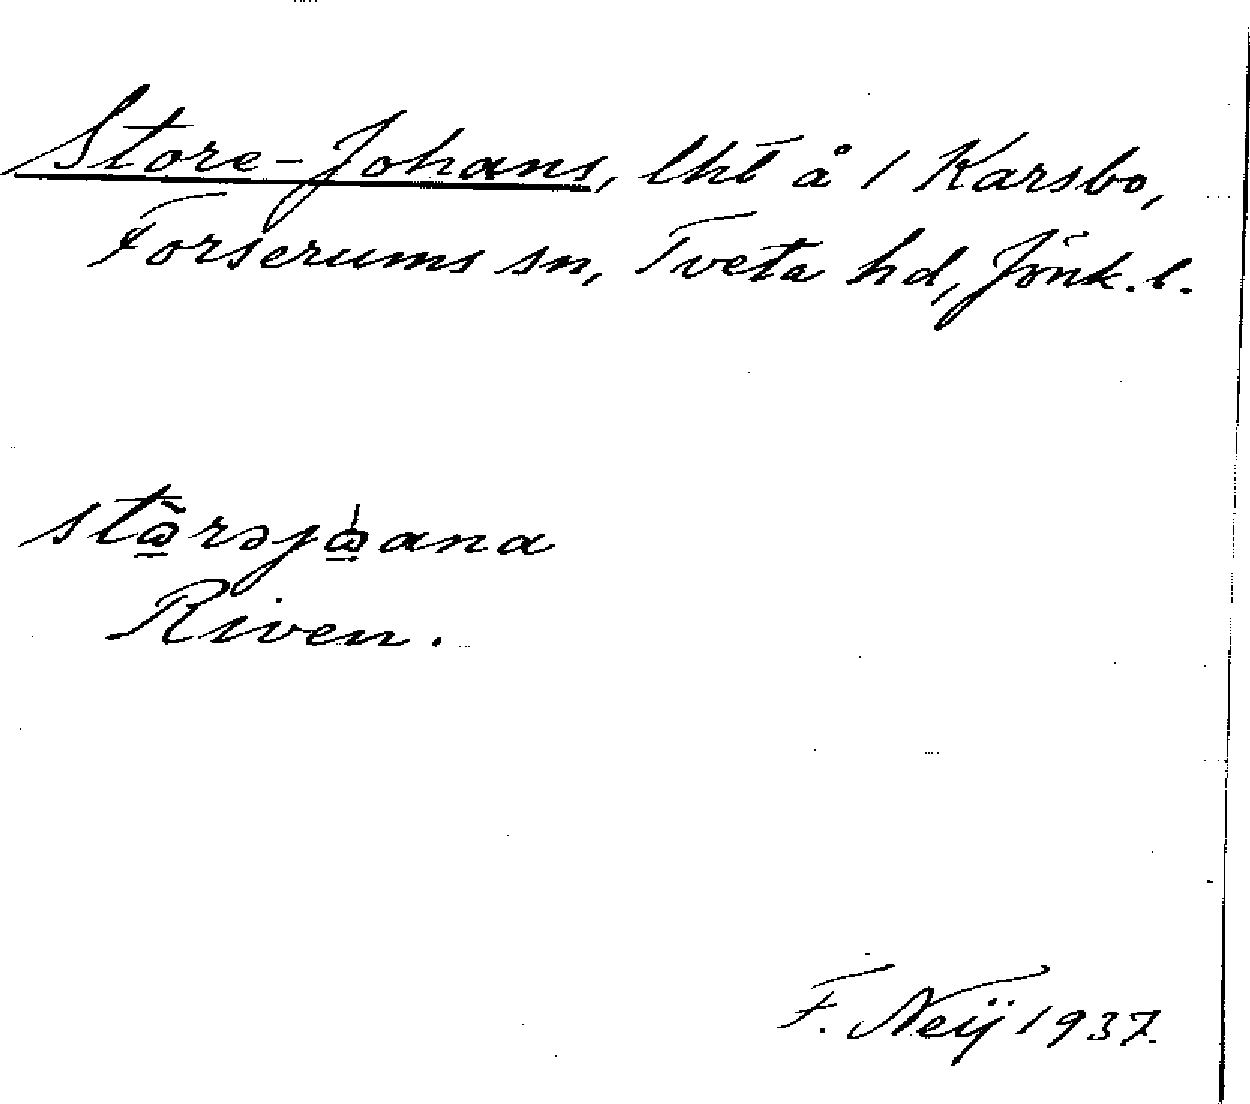 Store-Johans, lht å 1 Karsbo,
Forserums sn, Tveta hd, Jönk. l.
Riven.
F. Neij 1937.